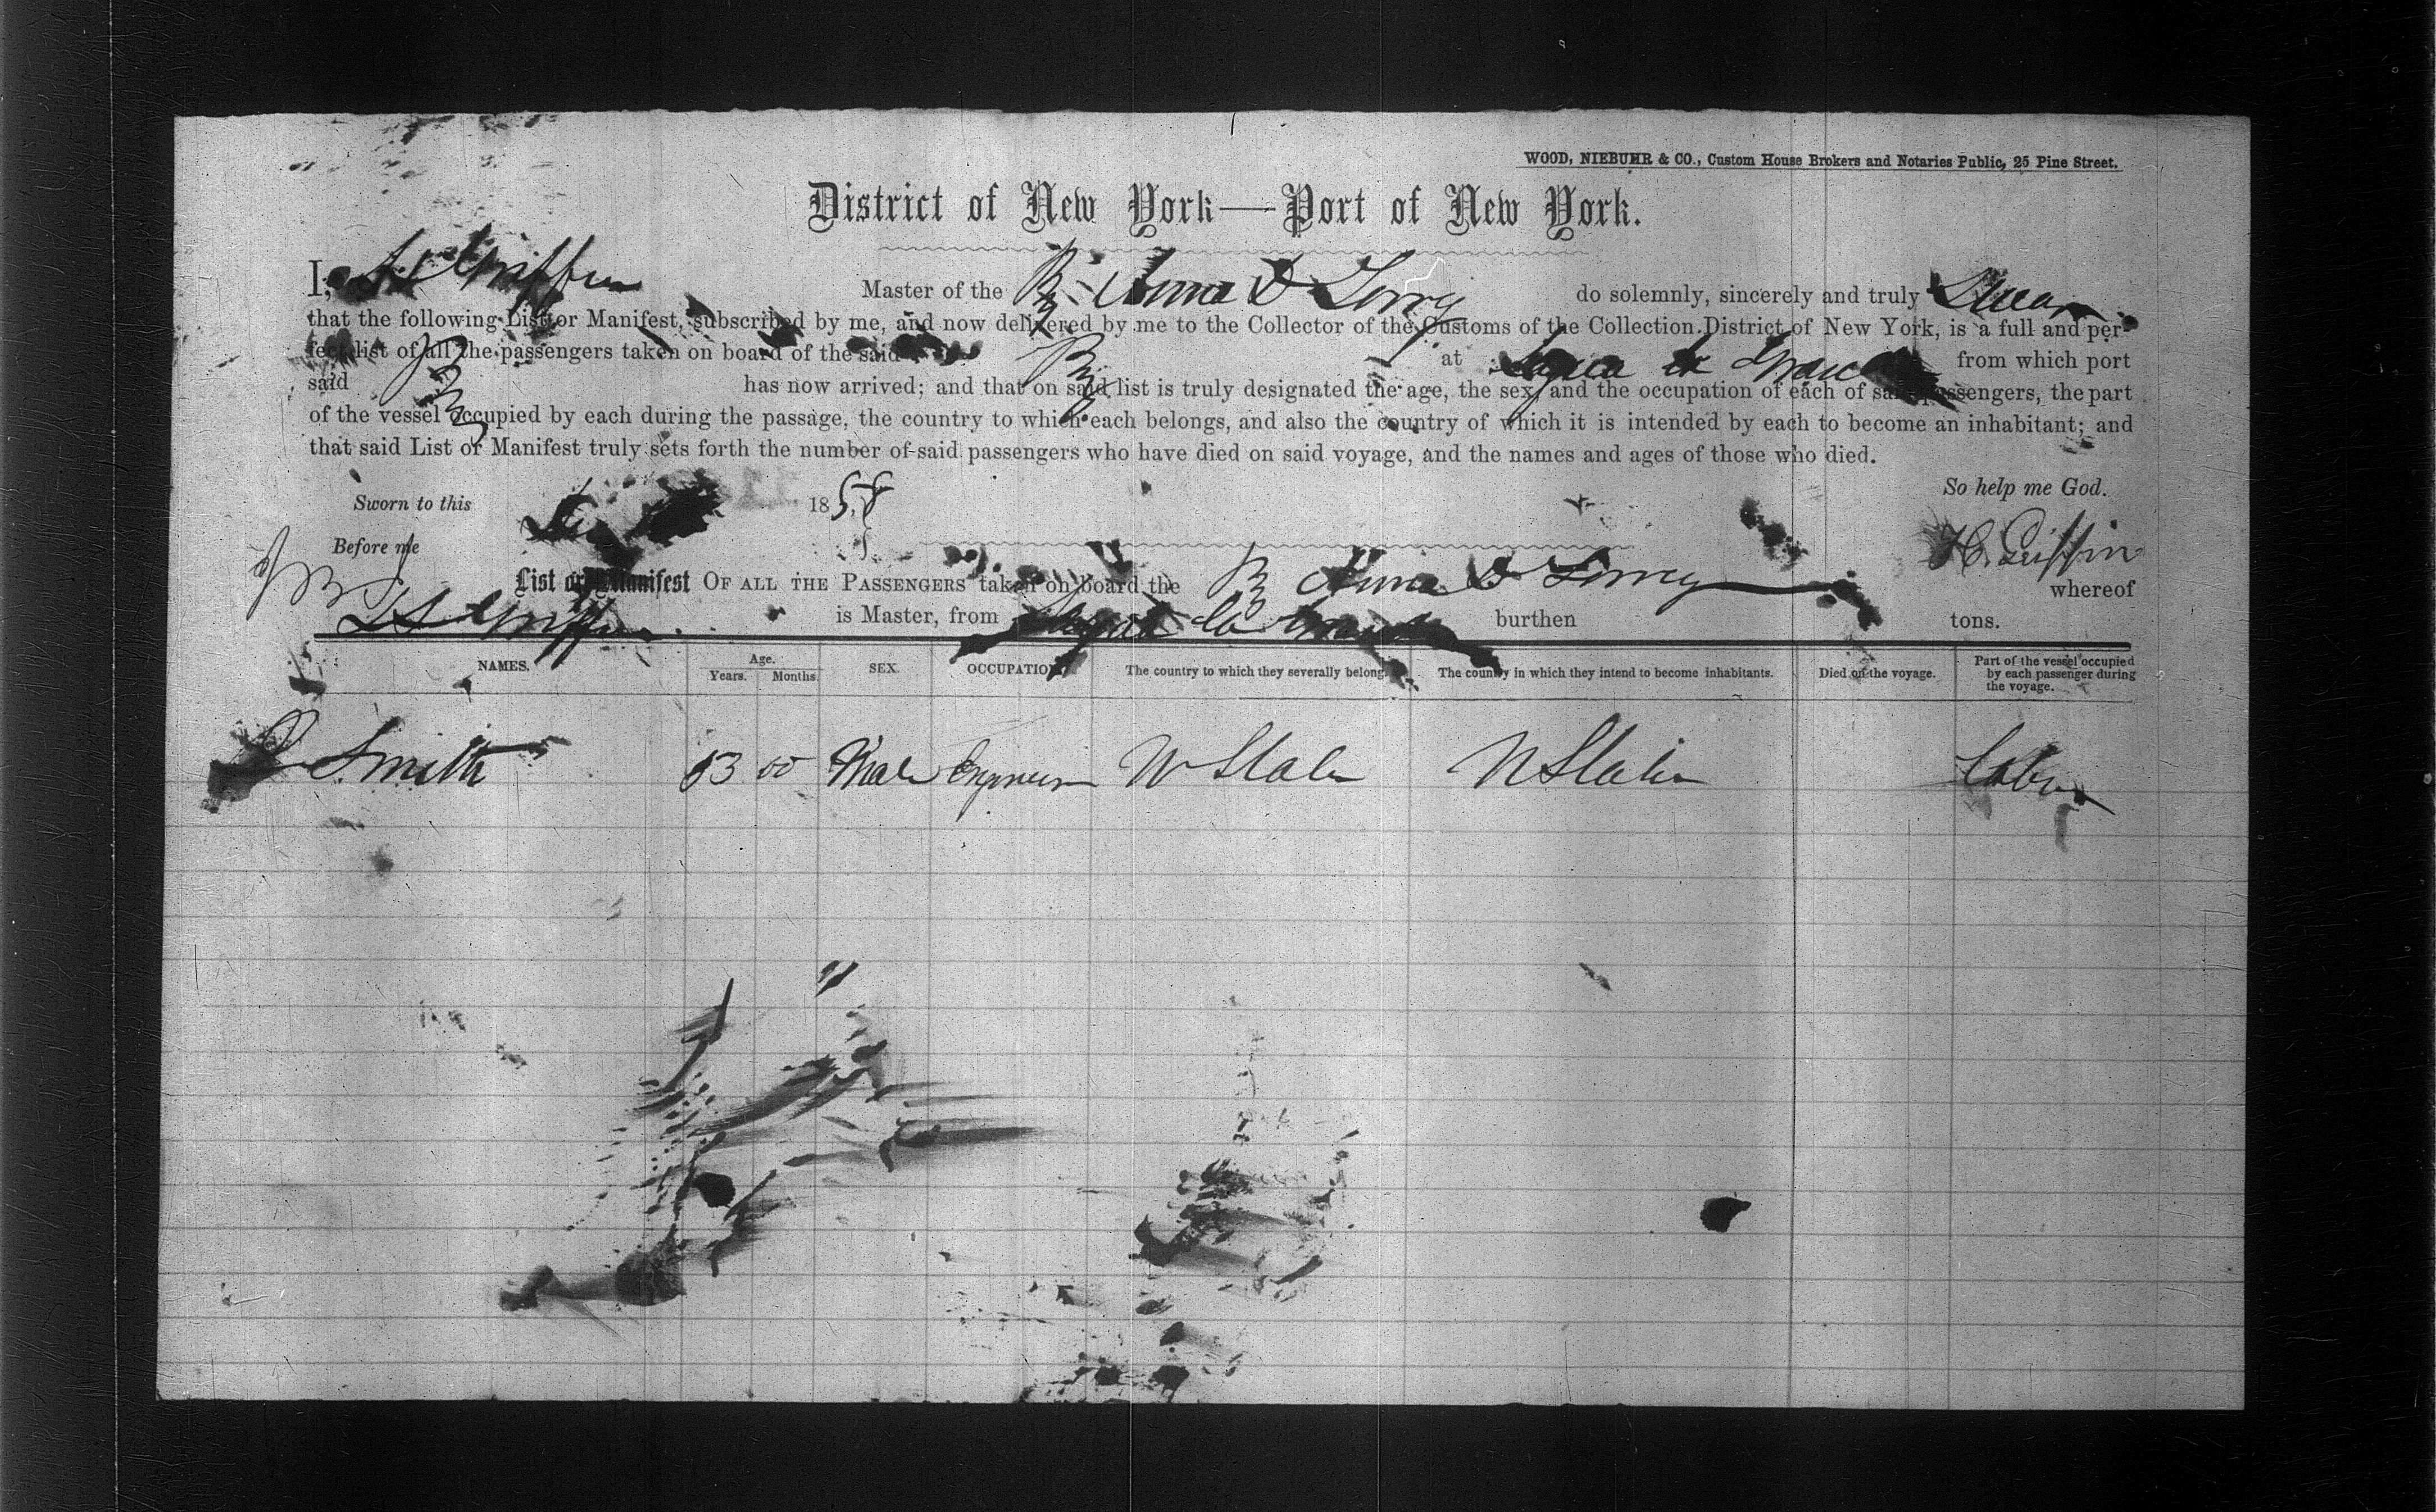 WOOD, NIEBUHR & CO., Custom House Brokers and Notaries Public, 25 Pine Street.
District of New York—Port of New York.
I, Griffin Master of the Bg Anna D Torrey do solemnly, sincerely and truly Swear
that the following List or Manifest, subscribed by me, and now delivered by me to the Collector of the Customs of the Collection District of New York, is a full and per-
fect list of all the passengers taken on board of the said Bg at Sagua la Grande from which port
said Bg has now arrived; and that on said list is truly designated the age, the sex, and the occupation of each of said passengers, the part
of the vessel occupied by each during the passage, the country to which each belongs, and also the country of which it is intended by each to become an inhabitant; and
that said List or Manifest truly sets forth the number of said passengers who have died on said voyage, and the names and ages of those who died.
So help me God.
Sworn to this 1858
Before me H. Griffin
List or Manifest OF ALL THE PASSENGERS taken on board the Bg Anna D Torrey whereof
Griffin is Master, from Sagua la Grande burthen tons.
NAMES. Age. Years. Months. SEX. OCCUPATION. The country to which they severally belong. The country in which they intend to become inhabitants. Died on the voyage. Part of the vessel occupied by each passenger during the voyage.
Smith 53 00 Male Engineer States States Cabin